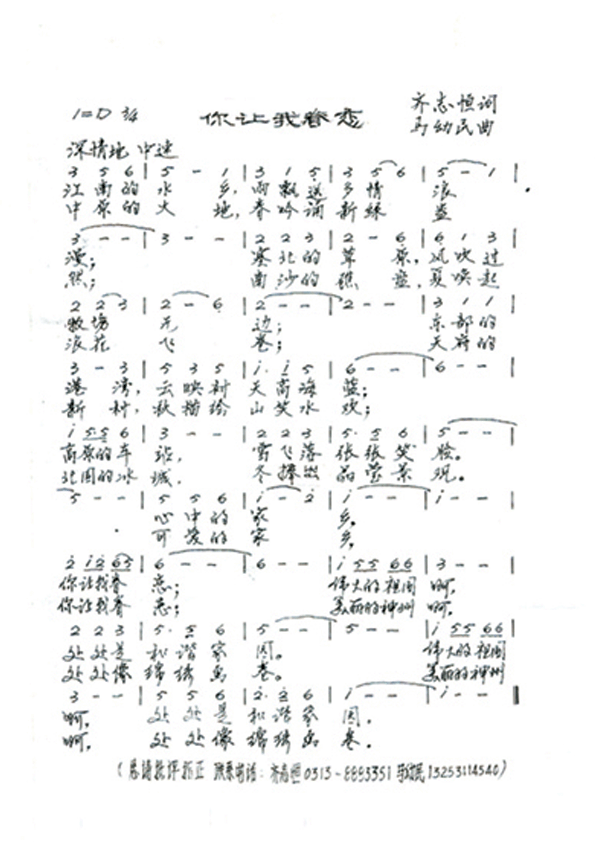 你让我眷恋
1=D 3/4
齐志恒词
马幼民曲
深情地 中速
3 5 6 | 5 - 1 | 3 1 5 | 3 5 6 | 5 - 1 |
江南的水 乡,雨飘送乡情 浪
中原的大 地,春吟诵新绿 盎
3 - - | 3 - - | 2 2 3 | 2 - 6 | 6 1 3 |
漫; 塞北的草 原,风吹过
然; 南沙的礁 盘,夏唤起
2 2 3 | 2 - 6 | 2 - - | 2 - - | 3 1 1 |
牧场 无 边; 东部的
浪花 飞 卷; 天府的
3 - 3 | 5 3 5 | i · i 5 | 6 - - | 6 - - |
港 湾,云映衬天高海 蓝;
新 村,秋描绘山笑水 欢;
i 5 5 6 | 3 - - | 2 2 3 | 5 · 5 6 | 5 - - |
高原的车 站, 雪飞落 张张笑 脸。
北国的冰 城, 冬捧出 晶莹景 观。
5 - - | 5 5 6 | i - 2 | i - - | i - - |
心中的家 乡,
可爱的家 乡,
2 i 2 6 5 | 6 - - | 6 - - | i 5 5 6 6 | 3 - - |
你让我眷 恋; 伟大的祖国 啊,
你让我眷 恋; 美丽的神州 啊,
2 2 3 | 5 · 5 6 | 5 - - | 5 - - | i 5 5 6 6 |
处处是 和谐家 园。 伟大的祖国
处处像 锦绣画 卷。 美丽的神州
3 - - | 5 5 6 | 2 · 2 6 | i - - | i - - ‖
啊, 处处是 和谐家 园。
啊, 处处像 锦绣画 卷。
(恳请批评指正 联系电话:齐志恒 0313-8883351 马幼民 13253114540)